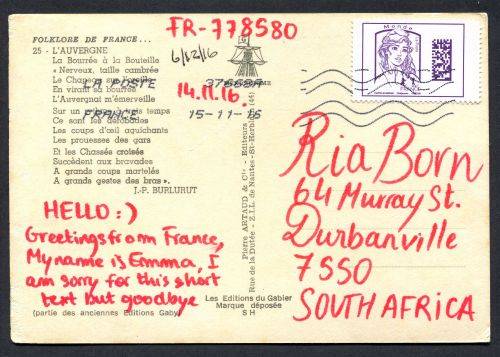 FR-778580
FOLKLORE DE FRANCE...
25 - L'AUVERGNE
La Bourrée à la Bouteille
« Nerveux, taille cambrée
En virant sa bourrée
L'Auvergnat m'émerveille
Les coups d'œil aguichants
Les prouesses des gars
Et les Chassés croisés
Succèdent aux bravades
A grands coups martelés
A grands gestes des bras ».
J.-P. BURLURUT
6/12/16
LA POSTE
37669A
14.11.16.
FRANCE
15-11-16
Monde
HELLO:)
Greetings from France,
My name is Emma, I
am sorry for this short
text but goodbye
(partie des anciennes Editions Gaby)
Les Editions du Gabier
Marque déposée
S H
Pierre ARTAUD & Cie - Editeurs
Rue de la Dutée - Z.I.L. de Nantes-St-Herblain (44)
Ria Born
64 Murray St.
Durbanville
7550
SOUTH AFRICA